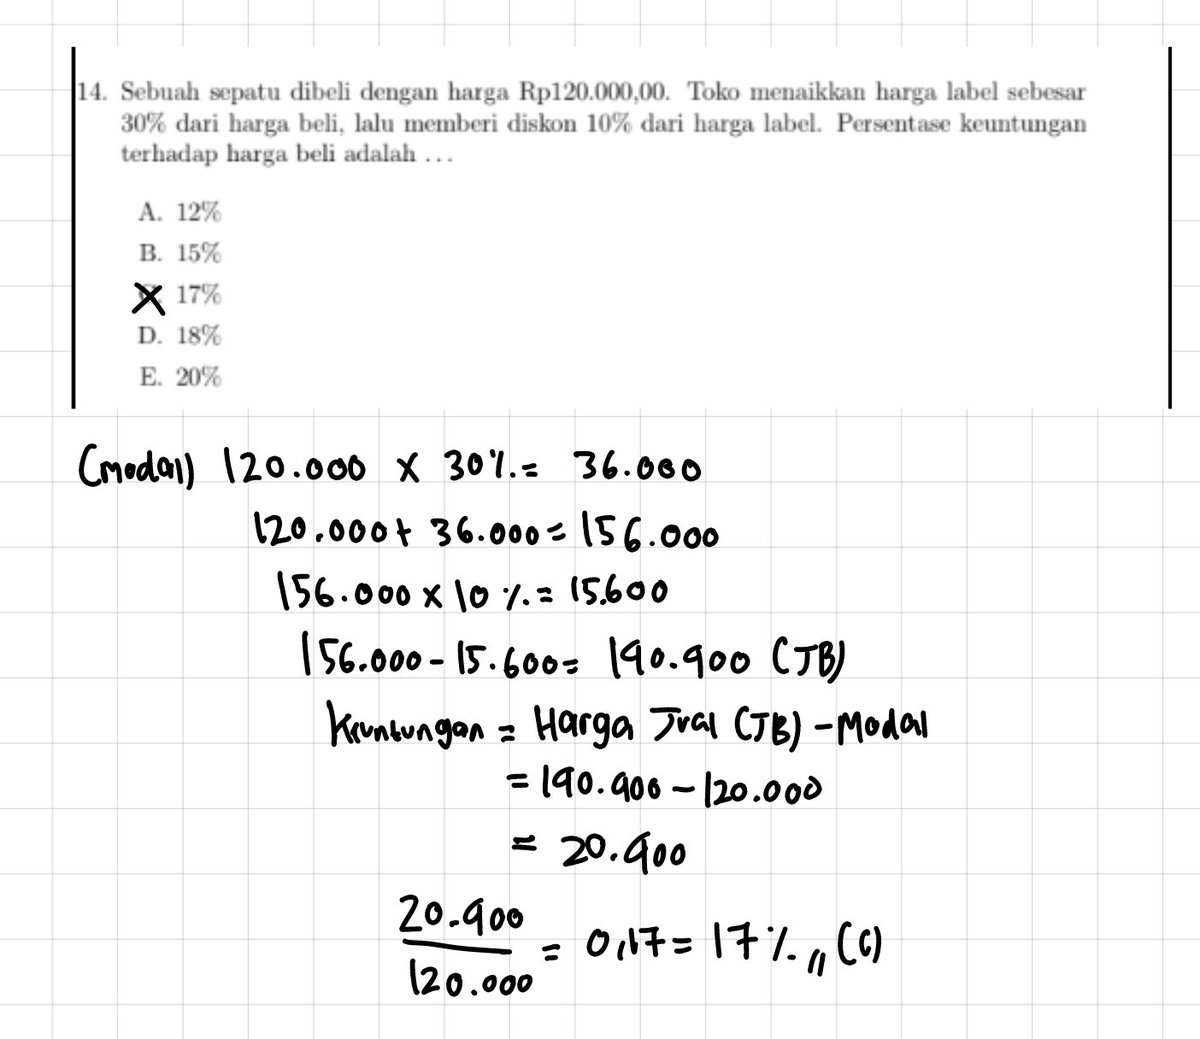 14. Sebuah sepatu dibeli dengan harga Rp120.000,00. Toko menaikkan harga label sebesar
30% dari harga beli, lalu memberi diskon 10% dari harga label. Persentase keuntungan
terhadap harga beli adalah ...
A. 12%
B. 15%
17%
D. 18%
E. 20%
(modal) 120.000 x 30% = 36.000
120.000 + 36.000 = 156.000
156.000 x 10 % = 15.600
156.000 - 15.600 = 140.400 (JB)
keuntungan = Harga Jual (JB) - Modal
= 140.400 - 120.000
= 20.400
20.400
120.000
= 0,17 = 17 % ,, (C)